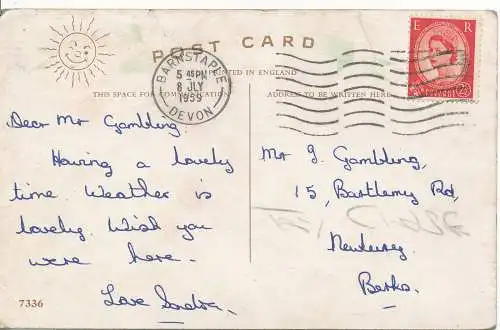 POST CARD
PRINTED IN ENGLAND
THIS SPACE FOR COMMUNICATION
ADDRESS TO BE WRITTEN HERE
BARNSTAPLE
5 45 PM
8 JLY
1959
DEVON
E R
2½
Dear Mr Gambling
Having a lovely
time. Weather is
lovely. Wish you
were here.
Love Sandra.
Mr J. Gambling,
15, Bartlemy Rd,
Newbury
Berks.
7336